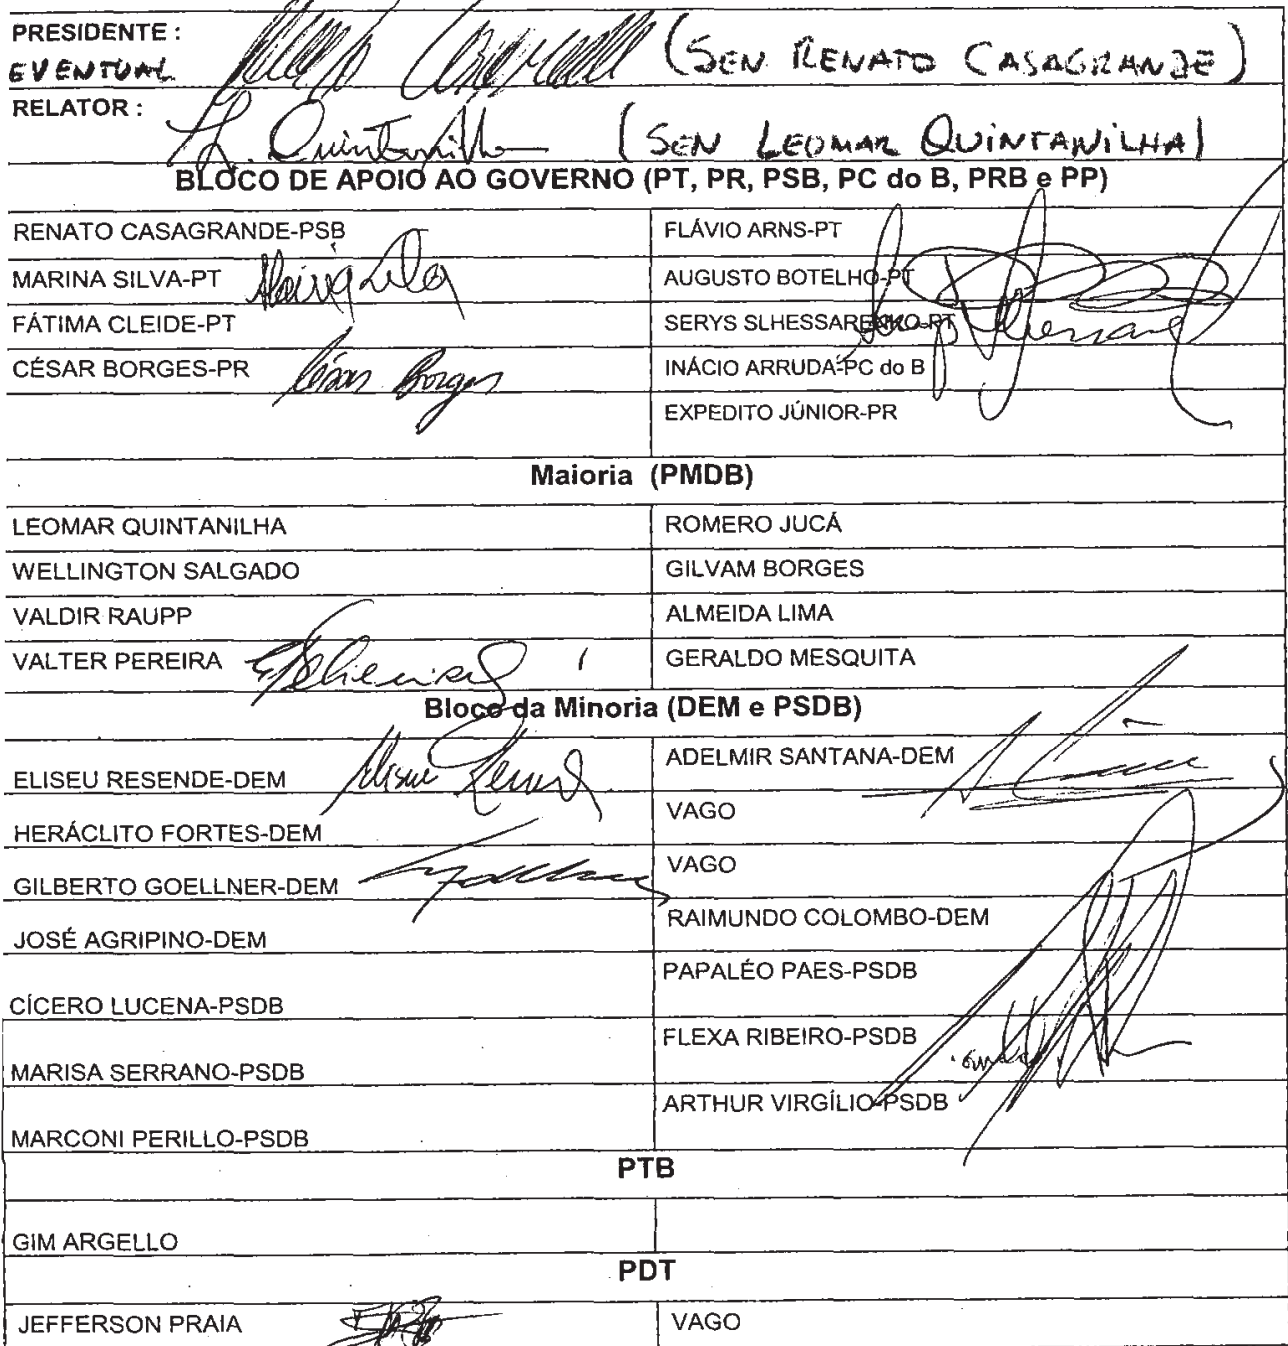 PRESIDENTE :
EVENTUAL (SEN RENATO CASAGRANDE)
RELATOR :
L. Quintanilha (SEN LEOMAR QUINTANILHA)
BLOCO DE APOIO AO GOVERNO (PT, PR, PSB, PC do B, PRB e PP)
RENATO CASAGRANDE-PSB FLÁVIO ARNS-PT
MARINA SILVA-PT Marina Silva AUGUSTO BOTELHO-PT
FÁTIMA CLEIDE-PT SERYS SLHESSARENKO-PT
CÉSAR BORGES-PR César Borges INÁCIO ARRUDA-PC do B
EXPEDITO JÚNIOR-PR
Maioria (PMDB)
LEOMAR QUINTANILHA ROMERO JUCÁ
WELLINGTON SALGADO GILVAM BORGES
VALDIR RAUPP ALMEIDA LIMA
VALTER PEREIRA GERALDO MESQUITA
Bloco da Minoria (DEM e PSDB)
ELISEU RESENDE-DEM ADELMIR SANTANA-DEM
HERÁCLITO FORTES-DEM VAGO
GILBERTO GOELLNER-DEM VAGO
JOSÉ AGRIPINO-DEM RAIMUNDO COLOMBO-DEM
CÍCERO LUCENA-PSDB PAPALÉO PAES-PSDB
MARISA SERRANO-PSDB FLEXA RIBEIRO-PSDB
MARCONI PERILLO-PSDB ARTHUR VIRGÍLIO-PSDB
PTB
GIM ARGELLO
PDT
JEFFERSON PRAIA VAGO